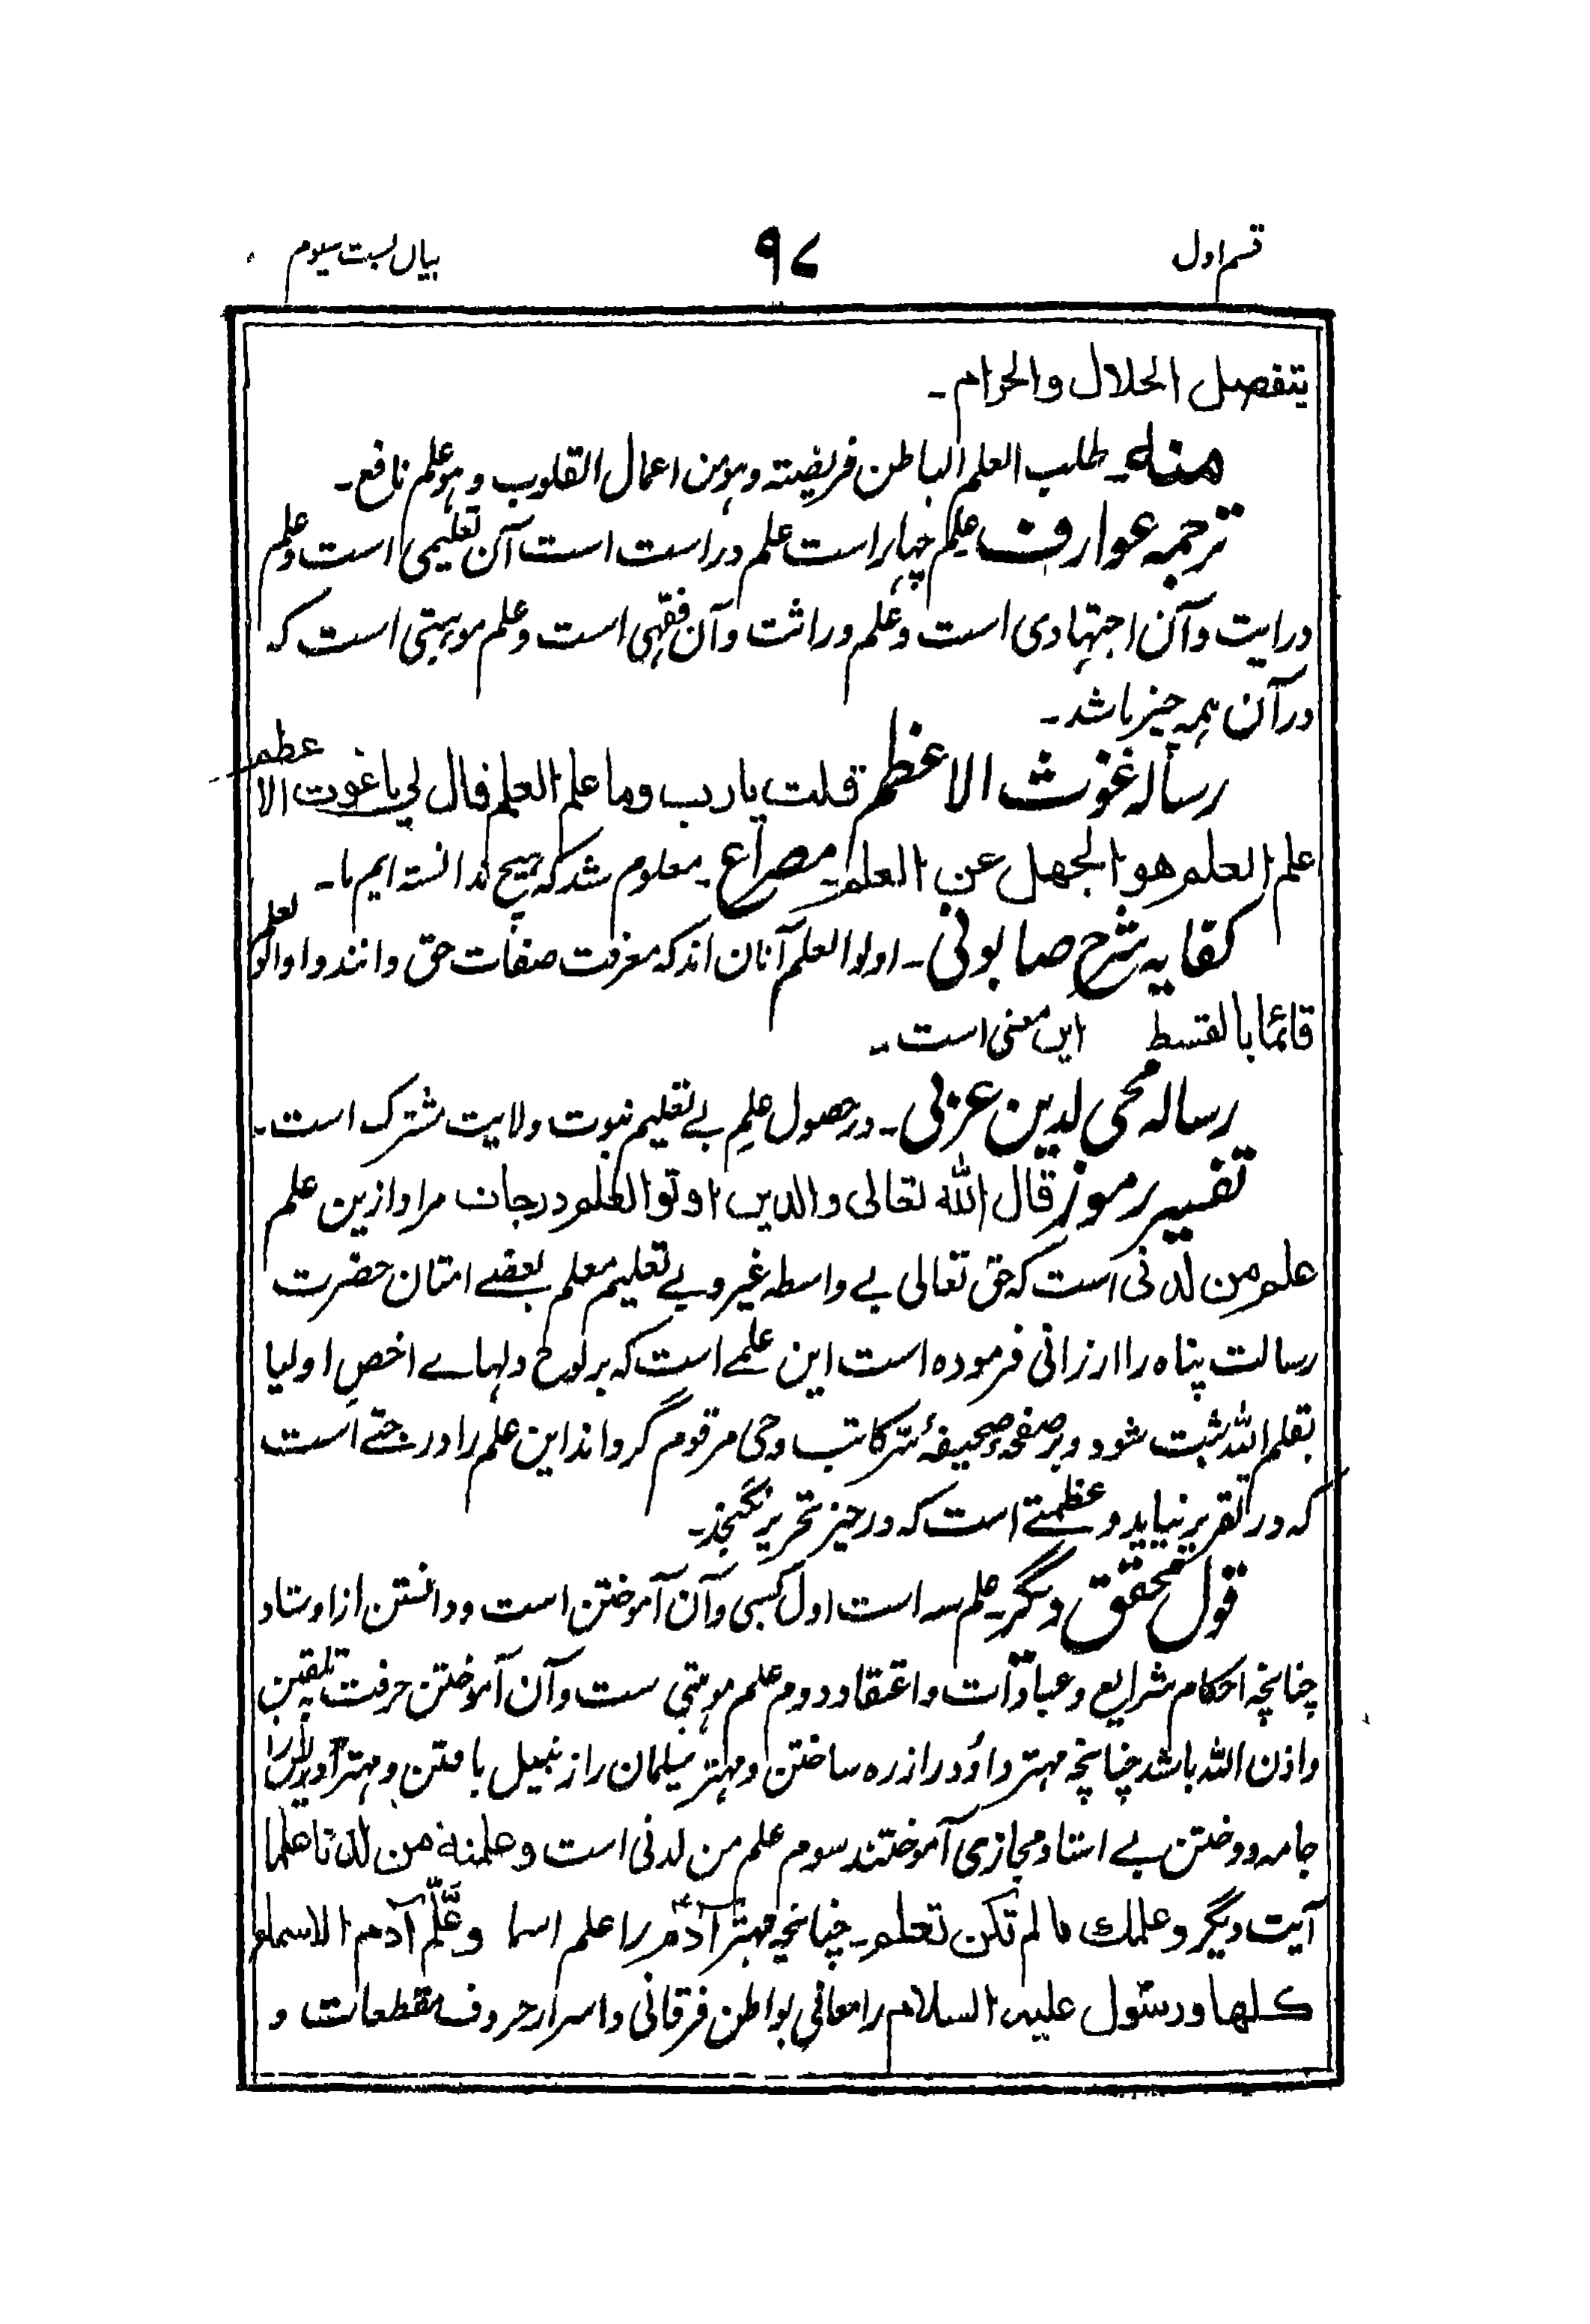 قسم اول
۹۷
بیان بست سیوم
یتفصل الحلال والحرام۔
منہ۔ طلب العلم الباطن فریضتہ وہومن اعمال القلوب وہوعلم نافع۔
ترجمہ عوارف علم چہار است علم دراست است آن تعلیمی است وعلم
درایت وآن اجتہادی است وعلم وراثت وآن فقہی است وعلم موہبتی است کہ
درآن ہمہ چیز باشد۔
رسالہ غوث الاعظم قلت یارب وما علم العلم قال لی یا غوث الاعظم
علم العلم هو الجهل عن العلم۔ مصراع۔ معلوم شد کہ ہیچ ندانستہ ایم ما۔
کفایہ شرح صابونی۔ اولوا العلم آنان اند کہ معرفت صفات حق دانند و اولو العلم
قائما بالقسط این معنی است۔
رسالہ محی لدین عربی۔ در حصول علمِ بے تعلیم نبوت ولایت مشترک است۔
تفسیر رموز قال الله تعالی والذین اوتوا العلم درجات مراد ازین علم
علم من لدنی است کہ حق تعالی بے واسطہ غیر و بے تعلیم معلم بعضے امتان حضرت
رسالت پناہ را ارزانی فرمودہ است این علمے است کہ بر لوح دلہاے اخصِ اولیا
بقلم اللہ ثبت شود و بر صفحہ صحیفۂ سر کاتب وحی مرقوم گرداند این علم را درجتے است
کہ در تقریر نیاید و عظمتے است کہ در حیز تحریر نگنجد۔
قول محقق دیگر۔ علم سہ است اول کسبی وآن آموختن است و دانستن از اوستاد
چنانچہ احکام شرایع و عبادات و اعتقاد دوم علم موہبتی ست وآن آموختن حرفت بہ تلقین
واذن اللہ باشد چنانچہ مہتر داؤد را زرہ ساختن و مہتر سلیمان را زنبیل بافتن و مہتر ادریس را
جامہ دوختن بے استاد مجازی آموختند سوم علم من لدنی است وعلمنه من لدنا علما
آیت دیگر وعلمك مالم تکن تعلم۔ چنانچہ مہتر آدمؑ را علم اسما وعَلَّم آدم الاسماء
کلها و رسول علیه السلام را معانی بواطن فرقانی و اسرار حروف مقطعات و